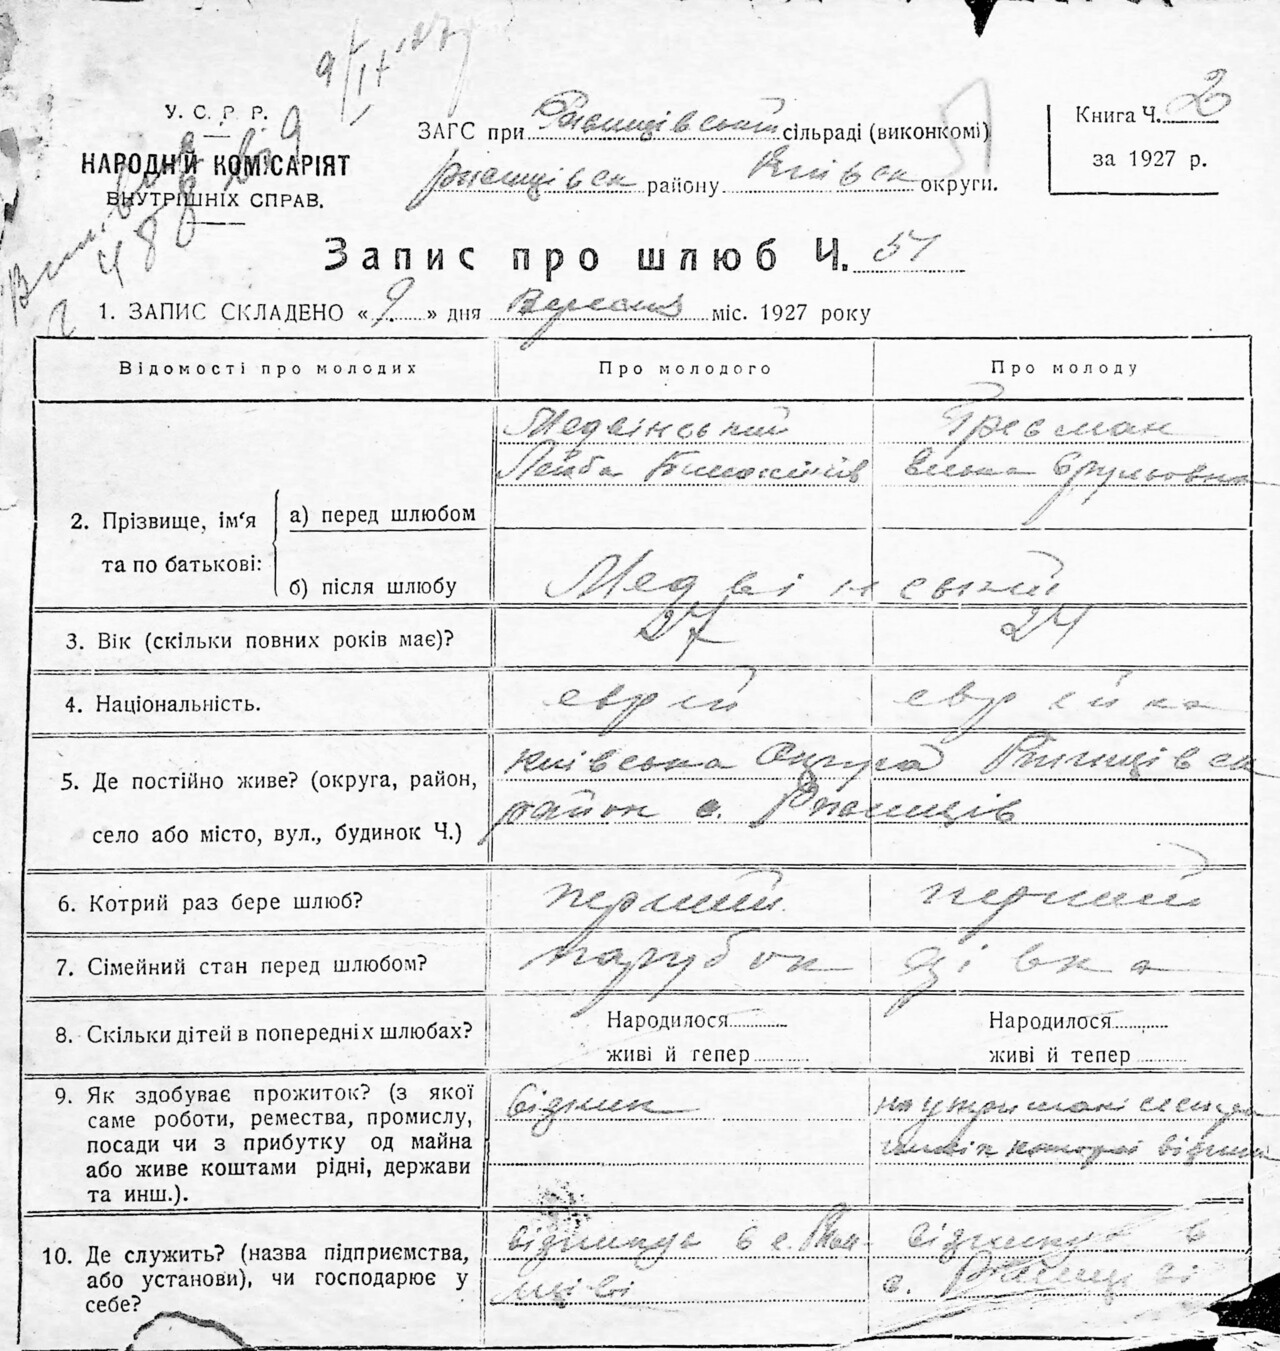 У. С. Р. Р.
НАРОДНІЙ КОМІСАРІЯТ
ВНУТРІШНІХ СПРАВ.
ЗАГС при Ржищівській сільраді (виконкомі)
Ржищівск району Київск округи.
Книга Ч. 2
за 1927 р.
51
Запис про шлюб Ч. 51
1. ЗАПИС СКЛАДЕНО « 9 » дня Вересня міс. 1927 року
Відомості про молодих Про молодого Про молоду
Медвінський
Лейба
2. Прізвище, ім'я та по батькові:
а) перед шлюбом
б) після шлюбу Медвінський
3. Вік (скільки повних років має)? 27 24
4. Національність. еврей еврейка
5. Де постійно живе? (округа, район, Київська Округа Ржищівск
село або місто, вул., будинок Ч.) район с. Ржищів
6. Котрий раз бере шлюб? перший перший
7. Сімейний стан перед шлюбом? парубок дівка
8. Скільки дітей в попередніх шлюбах? Народилося Народилося
живі й тепер живі й тепер
9. Як здобуває прожиток? (з якої
саме роботи, ремества, промислу,
посади чи з прибутку од майна
або живе коштами рідні, держави
та инш.).
10. Де служить? (назва підприємства, в с. Ржи- в
або установи), чи господарює у щіві с. Ржищіві
себе?